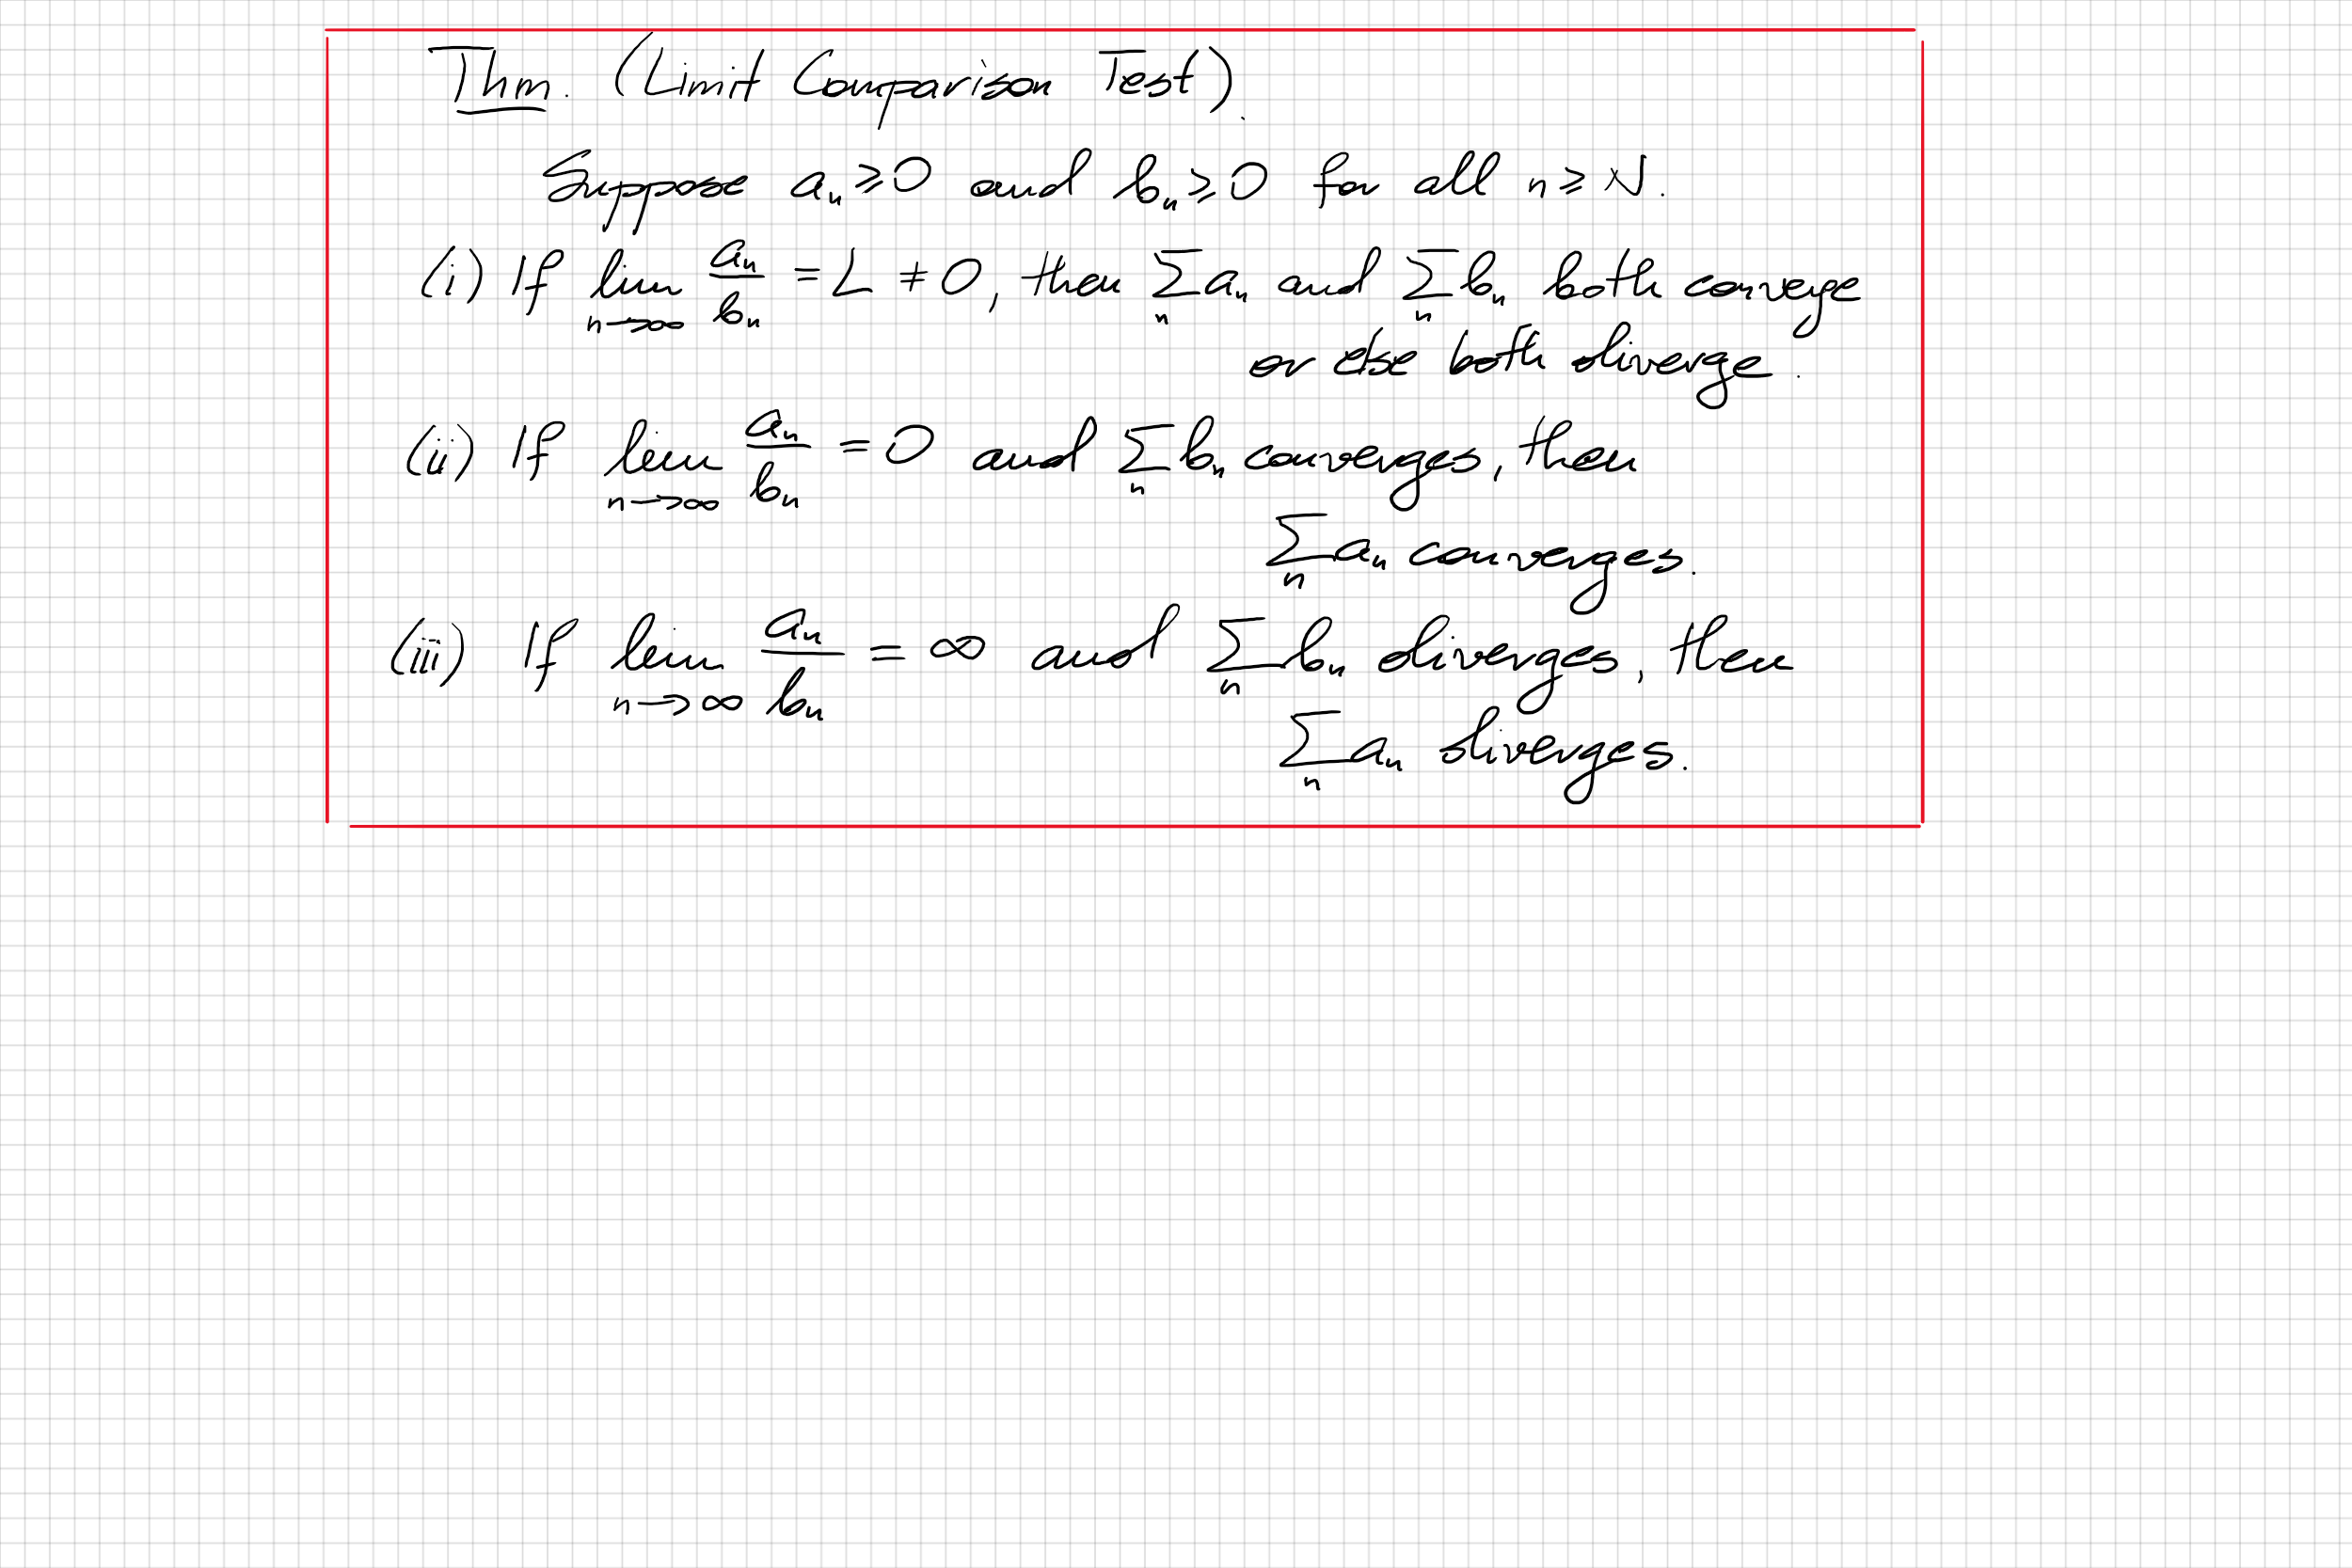 Thm. (Limit Comparison Test).
Suppose aₙ ⩾ 0 and bₙ ⩾ 0 for all n ⩾ N.
(i) If lim_{n→∞} aₙ/bₙ = L ≠ 0, then ∑ₙ aₙ and ∑ₙ bₙ both converge
or else both diverge.
(ii) If lim_{n→∞} aₙ/bₙ = 0 and ∑ₙ bₙ converges, then
∑ₙ aₙ converges.
(iii) If lim_{n→∞} aₙ/bₙ = ∞ and ∑ₙ bₙ diverges, then
∑ₙ aₙ diverges.